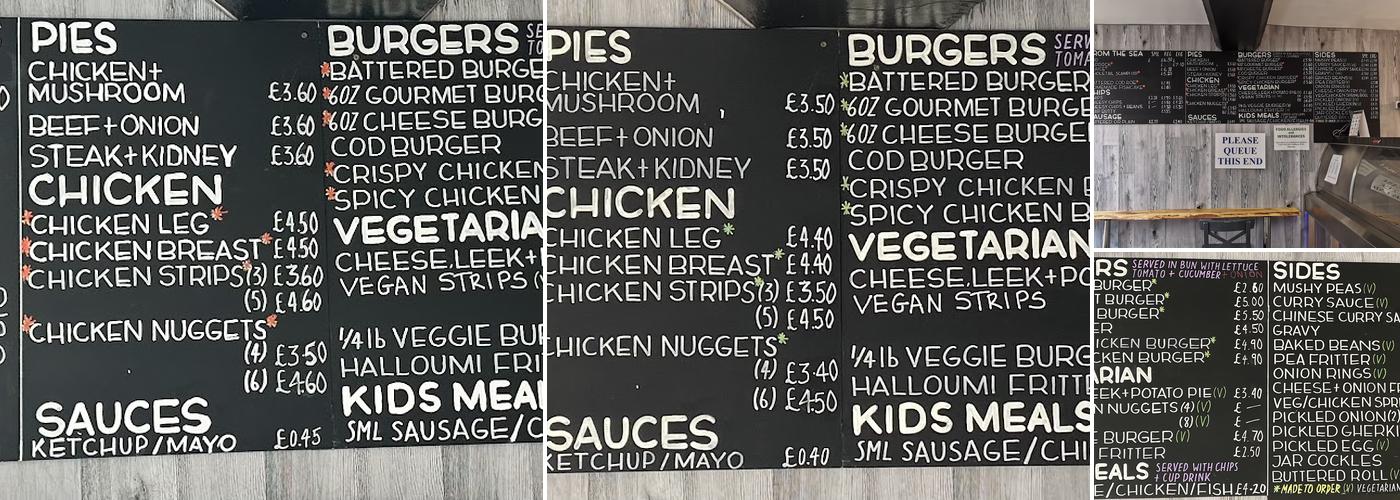 PIES
CHICKEN+
MUSHROOM £3.60
BEEF+ONION £3.60
STEAK+KIDNEY £3.60
CHICKEN
*CHICKEN LEG* £4.50
*CHICKEN BREAST* £4.50
*CHICKEN STRIPS*(3) £3.60
(5) £4.60
*CHICKEN NUGGETS*
(4) £3.50
(6) £4.60
SAUCES
KETCHUP/MAYO £0.45
BURGERS
*BATTERED BURGE
*6OZ GOURMET BURG
*6OZ CHEESE BURG
COD BURGER
*CRISPY CHICKEN
*SPICY CHICKEN
VEGETARIA
CHEESE.LEEK+
VEGAN STRIPS
1/4lb VEGGIE BU
HALLOUMI FRI
KIDS MEA
SML SAUSAGE/C
PIES
CHICKEN+
MUSHROOM £3.50
BEEF+ONION £3.50
STEAK+KIDNEY £3.50
CHICKEN
CHICKEN LEG* £4.40
CHICKEN BREAST* £4.40
CHICKEN STRIPS*(3) £3.50
(5) £4.50
CHICKEN NUGGETS*
(4) £3.40
(6) £4.50
SAUCES
KETCHUP/MAYO £0.40
BURGERS SERV
TOMA
*BATTERED BURGE
*6OZ GOURMET BURG
*6OZ CHEESE BURGE
COD BURGER
*CRISPY CHICKEN B
*SPICY CHICKEN B
VEGETARIAN
CHEESE.LEEK+PO
VEGAN STRIPS
1/4lb VEGGIE BURG
HALLOUMI FRITT
KIDS MEALS
SML SAUSAGE/CHI
FROM THE SEA
PIES
BURGERS
SIDES
CHICKEN
VEGETARIAN
SAUCES
KIDS MEALS
PLEASE
QUEUE
THIS END
FOOD ALLERGIES
AND
INTOLERANCES
RS SERVED IN BUN WITH LETTUCE
TOMATO + CUCUMBER + ONION
BURGER* £2.60
T BURGER* £5.00
BURGER* £5.50
ER £4.50
ICKEN BURGER* £4.90
CKEN BURGER* £4.90
ARIAN
EEK+POTATO PIE(V) £3.40
N NUGGETS (4)(V) £ —
(8)(V) £ —
E BURGER(V) £4.70
FRITTER £2.50
EALS SERVED WITH CHIPS
+ CUP DRINK
E/CHICKEN/FISH £4.20
SIDES
MUSHY PEAS(V)
CURRY SAUCE(V)
CHINESE CURRY SA
GRAVY
BAKED BEANS(V)
PEA FRITTER(V)
ONION RINGS(V)
CHEESE+ONION F
VEG/CHICKEN SPR
PICKLED ONION(2)
PICKLED GHERKI
PICKLED EGG(V)
JAR COCKLES
BUTTERED ROLL(V)
*MADE TO ORDER (V) VEGETARIAN